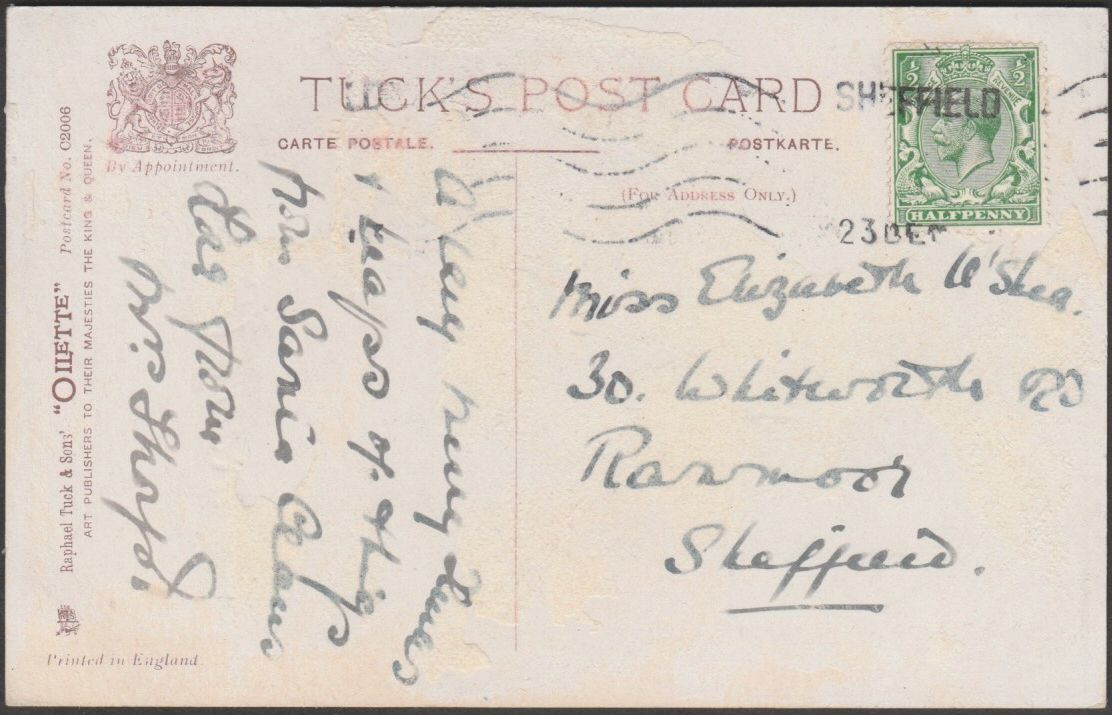 TUCK'S POST CARD
CARTE POSTALE.
POSTKARTE.
(FOR ADDRESS ONLY.)
By Appointment.
Postcard No. C2006
Raphael Tuck & Sons' "OILETTE"
ART PUBLISHERS TO THEIR MAJESTIES THE KING & QUEEN.
Printed in England.
SHEFFIELD
23 DEC
1/2 1/2
REVENUE
HALFPENNY
A very merry Xmas
& heaps of things
from Santa Claus
love from
Mrs. Thorpe
Miss Elizabeth O'Shea.
30. Whitworth RD
Ranmoor
Sheffield.